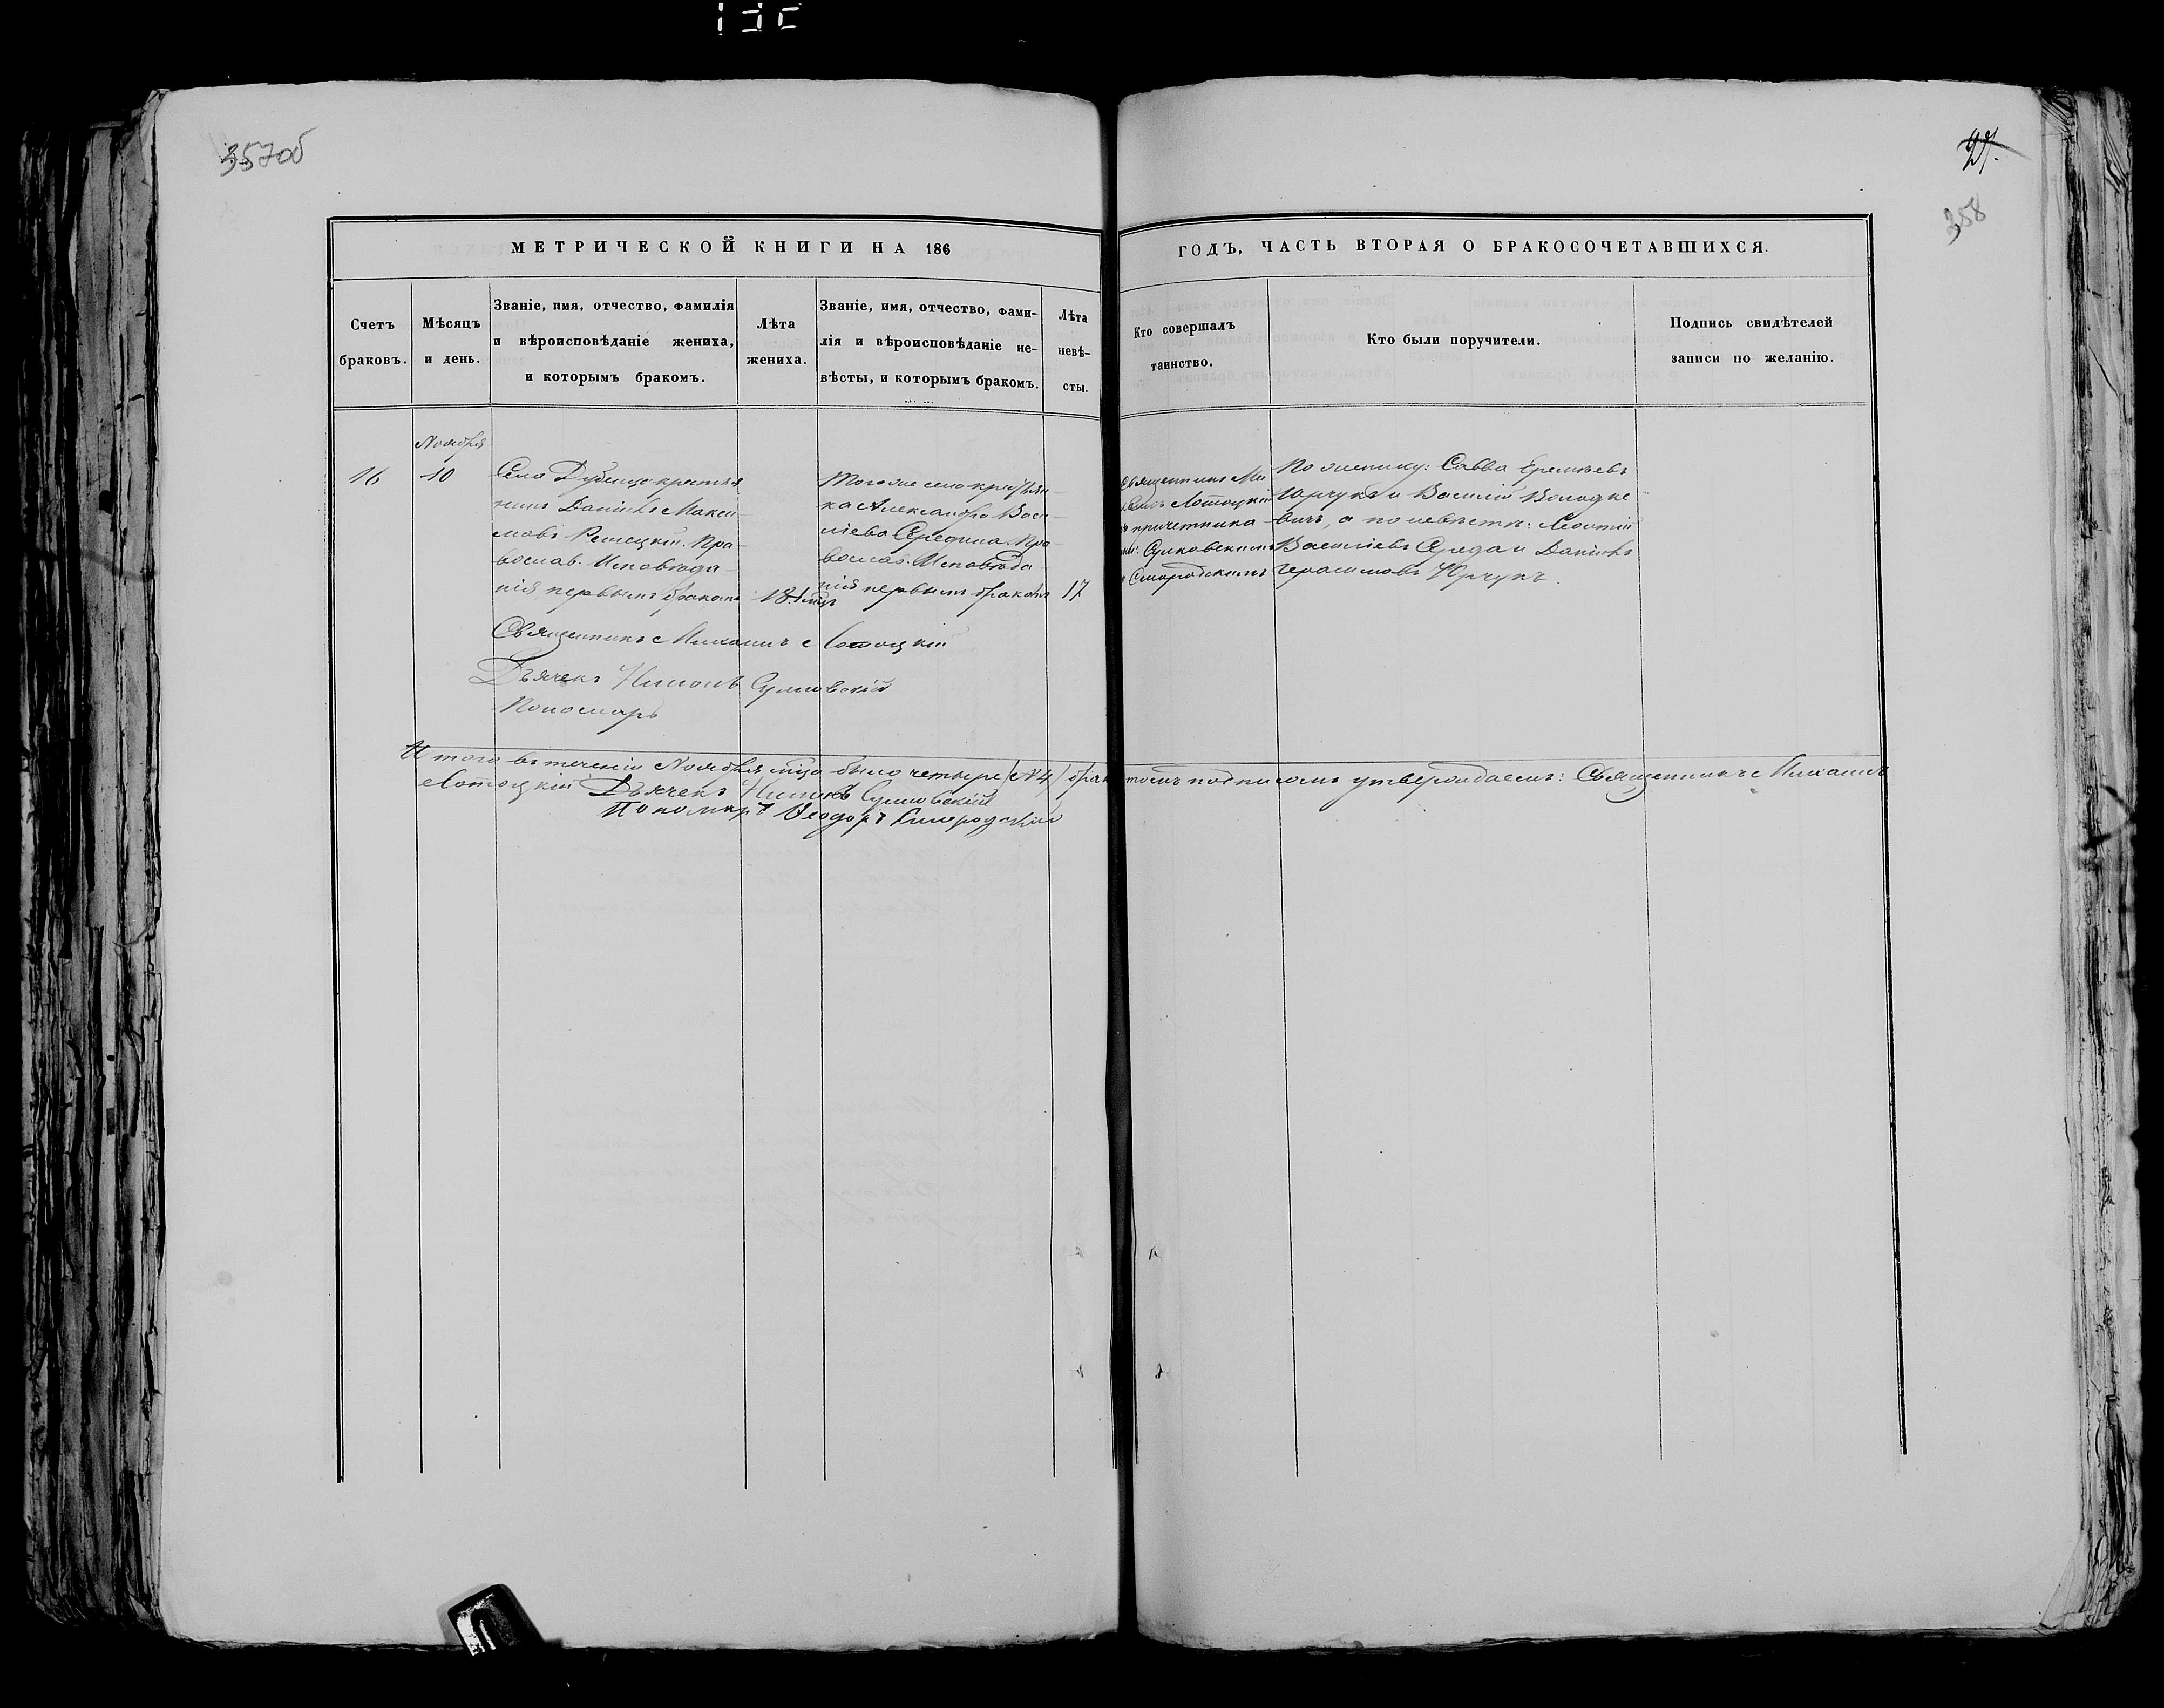 357об
358
МЕТРИЧЕСКОЙ КНИГИ НА 186
ГОДЪ, ЧАСТЬ ВТОРАЯ О БРАКОСОЧЕТАВШИХСЯ.
Счетъ
браковъ.
Мѣсяцъ
и день.
Званіе, имя, отчество, фамилія
и вѣроисповѣданіе жениха,
и которымъ бракомъ.
Лѣта
жениха.
Званіе, имя, отчество, фами-
лія и вѣроисповѣданіе не-
вѣсты, и которымъ бракомъ.
Лѣта
невѣ-
сты.
Кто совершалъ
таинство.
Кто были поручители.
Подпись свидѣтелей
записи по желанію.
16
Ноября
10
Села крестья
нинъ Даніилъ Макси-
мовъ Репецкій. Пра-
вослав. Исповѣда-
нія первымъ бракомъ
18
Тогоже села крестьян-
ка Александра Васи-
ліева Середина. Пра-
вослав. Исповѣда
нія первымъ бракомъ
17
Священникъ Ми
Лотоцкій
причетника
Сулковскимъ
Смородскимъ
По женику: Савва Еремѣевъ
Юрчукъ и Василій Володке
вичъ, а по невѣсти: Леонтій
Василіевъ Середа и Даніилъ
Герасимовъ Юрчукъ.
Священникъ Михаилъ Лотоцкій
Дьячекъ
Пономарь
Итого въ теченіи Ноября мца было четыре /№4/ брак томъ подписомъ утверждаемъ: Священникъ Михаилъ
Лотоцкій Дьячекъ
Пономарь Ѳеодоръ Смородскій